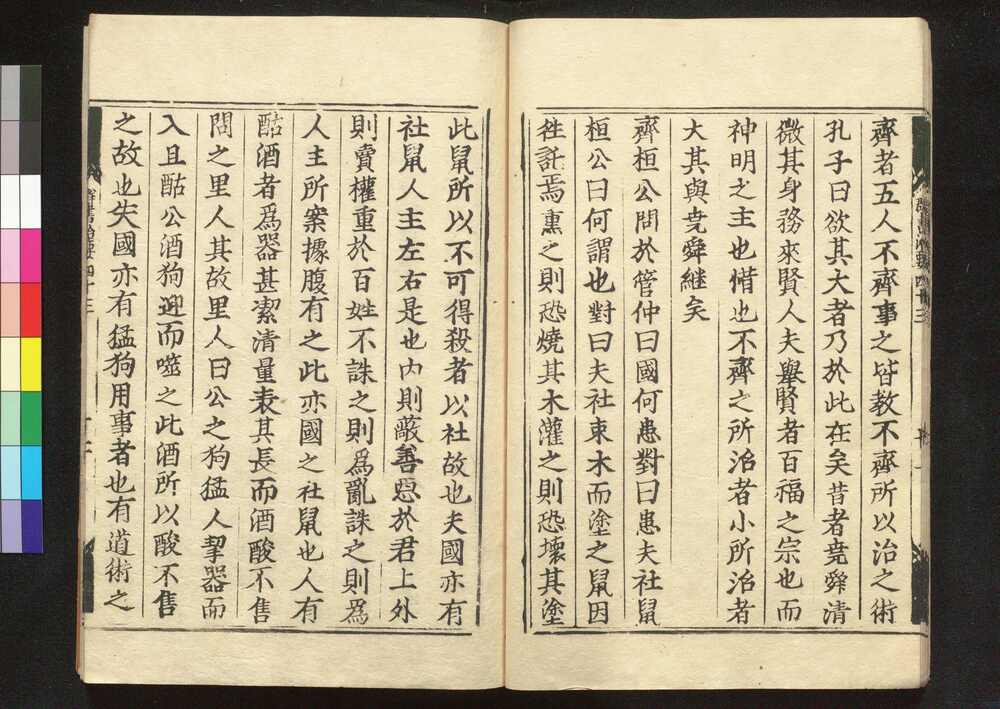 齊者五人不齊事之皆教不齊所以治之術
孔子曰欲其大者乃於此在矣昔者堯舜清
微其身務來賢人夫舉賢者百福之宗也而
神明之主也惜也不齊之所治者小所治者
大其與堯舜継矣
齊桓公問於管仲曰國何患對曰患夫社鼠
桓公曰何謂也對曰夫社束木而塗之鼠因
徃託焉熏之則恐燒其木灌之則恐壞其塗
此鼠所以不可得殺者以社故也夫國亦有
社鼠人主左右是也内則蔽善惡於君上外
則賣權重於百姓不誅之則爲亂誅之則爲
人主所案據腹有之此亦國之社鼠也人有
酤酒者爲器甚潔清量表其長而酒酸不售
問之里人其故里人曰公之狗猛人挈器而
入且酤公酒狗迎而噬之此酒所以酸不售
之故也夫國亦有猛狗用事者也有道術之